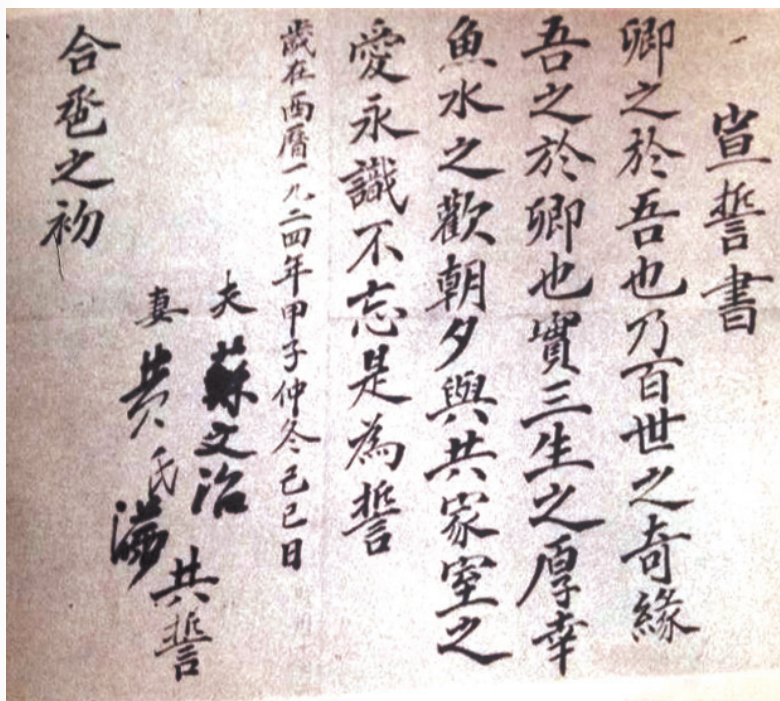 宣誓書
卿之於吾也乃百世之奇緣
吾之於卿也實三生之厚幸
魚水之歡朝夕與共家室之
愛永識不忘是為誓
歲在西曆一九二四年甲子仲冬己巳日
夫 蘇文治
妻 黄氏滿 共誓
合卺之初